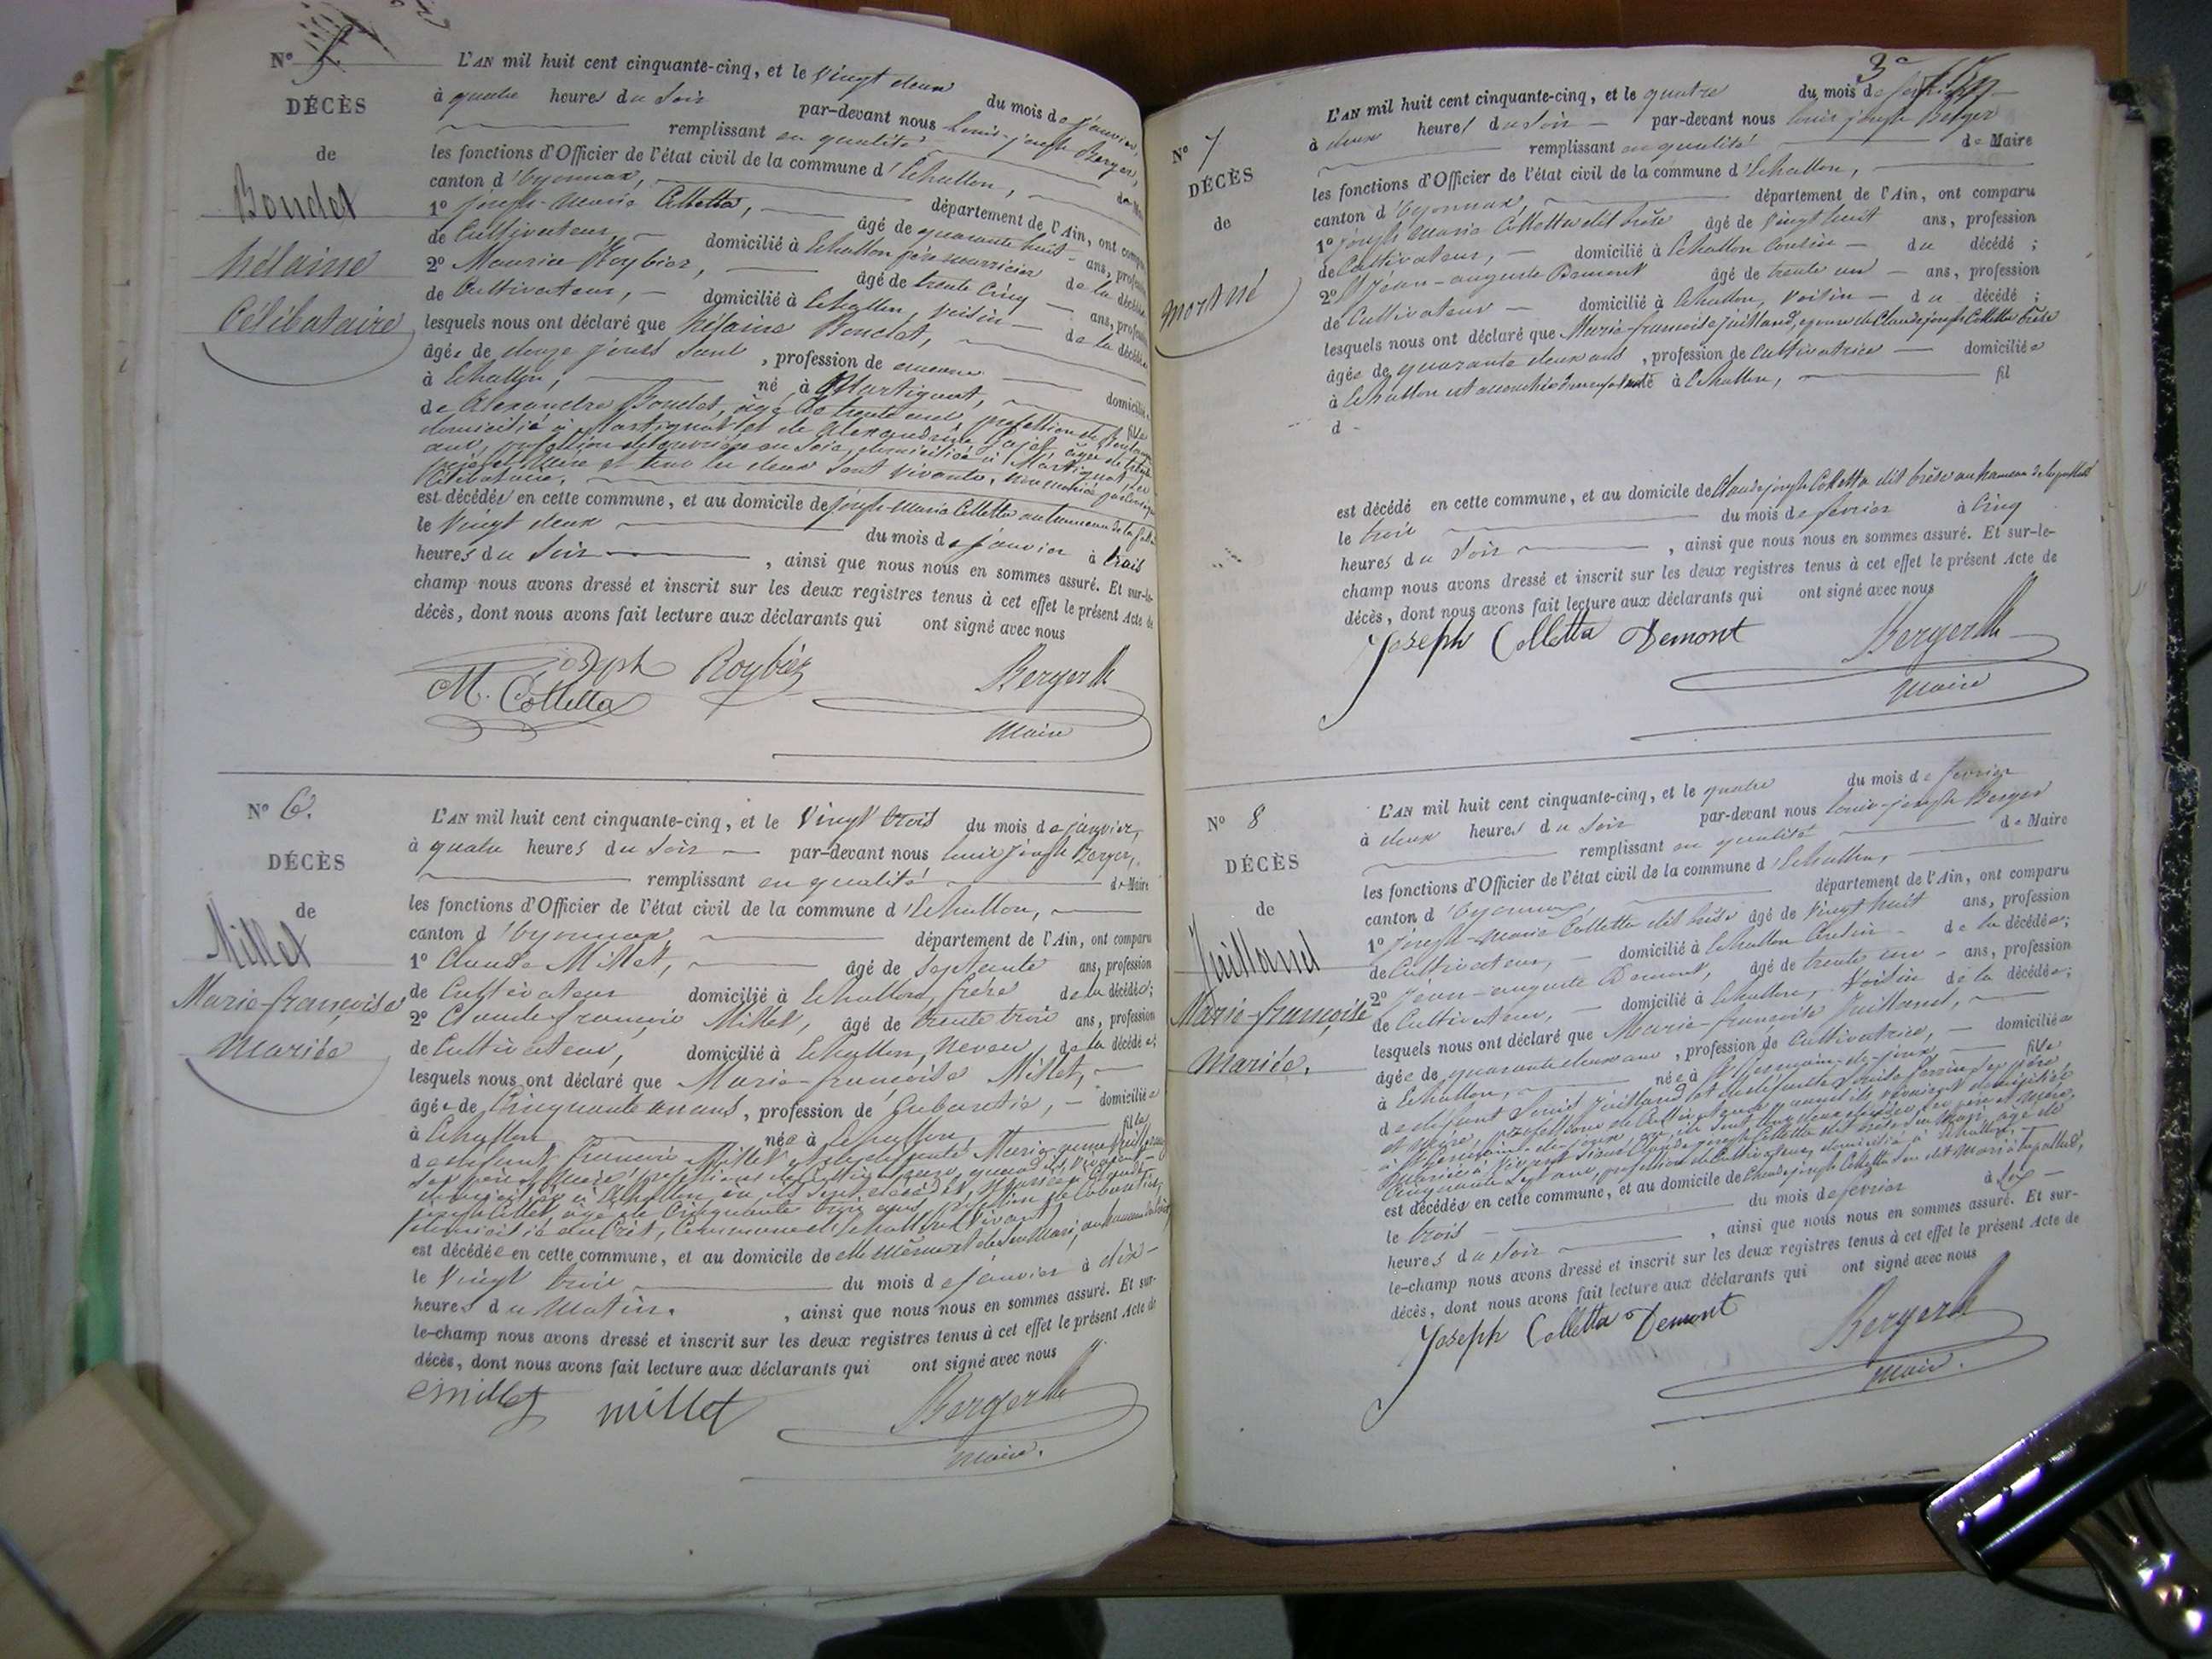 N° 5
DÉCÈS
de
Boudet
hélaine
Célibataire
L'AN mil huit cent cinquante-cinq, et le vingt deux du mois de janvier,
à quatre heures du soir par-devant nous Louis-joseph Berger,
remplissant en qualité de Maire
les fonctions d'Officier de l'état civil de la commune d'Echallon,
canton d'Oyonnax, département de l'Ain, ont comparu
1° joseph-Marie Colletta, âgé de quarante huit ans, profession
de Cultivateur, domicilié à Echallon père nourricier de la décédée
2° Maurice Roybier, âgé de trente cinq ans, profession
de Cultivateur, domicilié à Echallon, voisin de la décédée
lesquels nous ont déclaré que hélaine Boudet,
âgée de douze jours , profession de aucune domiciliée
à Echallon, né à Martignat, fille
de Alexandre Boudet, âgé de trente profession de
domicilié à Martignat et de Alexandrine âgée de
ans, profession de en soie, domiciliée à Martignat, ses
père et Mère et tous les deux sont vivants,
Célibataire,
est décédée en cette commune, et au domicile de joseph-Marie Colletta au hameau de la
le vingt deux du mois de janvier à trois
heures du soir , ainsi que nous nous en sommes assuré. Et sur-le-
champ nous avons dressé et inscrit sur les deux registres tenus à cet effet le présent Acte de
décès, dont nous avons fait lecture aux déclarants qui ont signé avec nous
Joseph M. Colletta Roybier Berger
Maire
N° 6.
DÉCÈS
de
Millet
Marie-françoise
Mariée
L'AN mil huit cent cinquante-cinq, et le vingt trois du mois de janvier,
à quatre heures du soir par-devant nous louis joseph Berger,
remplissant en qualité de Maire
les fonctions d'Officier de l'état civil de la commune d'Echallon,
canton d'Oyonnax département de l'Ain, ont comparu
1° Claude Millet, âgé de Septante ans, profession
de Cultivateur domicilié à Echallon, frère de la décédée;
2° Claude françois Millet, âgé de trente trois ans, profession
de Cultivateur, domicilié à Echallon, neveu de la décédée;
lesquels nous ont déclaré que Marie-françoise Millet,
âgée de Cinquante un ans, profession de Cabaretie, domiciliée
à Echallon née à Echallon fille
de défunt françois Millet et de défunte Marie
ses père et Mère, professions de Cultivateurs, quand ils vivaient
domiciliés à Echallon, où ils sont décédés,
joseph âgé de Cinquante trois ans, profession de Cabaretier,
domicilié au Crêt, Commune d'Echallon vivant,
est décédée en cette commune, et au domicile de elle même et de son Mari, au hameau
le vingt trois du mois de janvier à dix
heures du Matin. , ainsi que nous nous en sommes assuré. Et sur-
le-champ nous avons dressé et inscrit sur les deux registres tenus à cet effet le présent Acte de
décès, dont nous avons fait lecture aux déclarants qui ont signé avec nous
Cmillet millet Berger
Maire.
3e
N° 7
DÉCÈS
de
Mort né
L'AN mil huit cent cinquante-cinq, et le quatre du mois de février
à deux heures du soir par-devant nous louis joseph Berger
remplissant en qualité de Maire
les fonctions d'Officier de l'état civil de la commune d'Echallon,
canton d'Oyonnax, département de l'Ain, ont comparu
1° joseph Marie Colletta dit brise âgé de vingt huit ans, profession
de Cultivateur, domicilié à Echallon Cousin du décédé ;
2° Jean-auguste Demont âgé de trente un ans, profession
de Cultivateur domicilié à Echallon, Voisin du décédé ;
lesquels nous ont déclaré que Marie-françoise Juilland, épouse de Claude joseph Colletta brise
âgée de quarante deux ans , profession de Cultivatrice domiciliée
à Echallon est accouchée à Echallon, fil
d
est décédé en cette commune, et au domicile de Claude joseph Colletta dit brise au hameau de
le trois du mois de février à Cinq
heures du soir , ainsi que nous nous en sommes assuré. Et sur-le-
champ nous avons dressé et inscrit sur les deux registres tenus à cet effet le présent Acte de
décès, dont nous avons fait lecture aux déclarants qui ont signé avec nous
Joseph Colletta Demont Berger
Maire
N° 8
DÉCÈS
de
Juilland
Marie-françoise
Mariée.
L'AN mil huit cent cinquante-cinq, et le quatre du mois de février
à deux heures du soir par-devant nous louis-joseph Berger
remplissant en qualité de Maire
les fonctions d'Officier de l'état civil de la commune d'Echallon,
canton d'Oyonnax, département de l'Ain, ont comparu
1° joseph-Marie Colletta dit brise âgé de vingt huit ans, profession
de Cultivateur, domicilié à Echallon Cousin de la décédée;
2° jean-auguste Demont, âgé de trente un ans, profession
de Cultivateur, domicilié à Echallon, Voisin de la décédée;
lesquels nous ont déclaré que Marie-françoise Juilland,
âgée de quarante deux ans , profession de Cultivatrice, domiciliée
à Echallon, née à St Germain-de-joux fille
de défunt Louis Juilland et de défunte Louise Perrin ses père
et Mère, professions de Cultivateurs quand ils vivaient domiciliés
à St Germain-de-joux, où ils sont tous deux décédés, ses père et mère,
Mariée à Claude joseph Colletta dit brise son Mari, âgé de
Cinquante sept ans, profession de Cultivateur, domicilié à Echallon,
est décédée en cette commune, et au domicile de Claude joseph Colletta son dit Mari
le trois du mois de février à six
heures du soir , ainsi que nous nous en sommes assuré. Et sur-
le-champ nous avons dressé et inscrit sur les deux registres tenus à cet effet le présent Acte de
décès, dont nous avons fait lecture aux déclarants qui ont signé avec nous
Joseph Colletta Demont Berger
Maire.